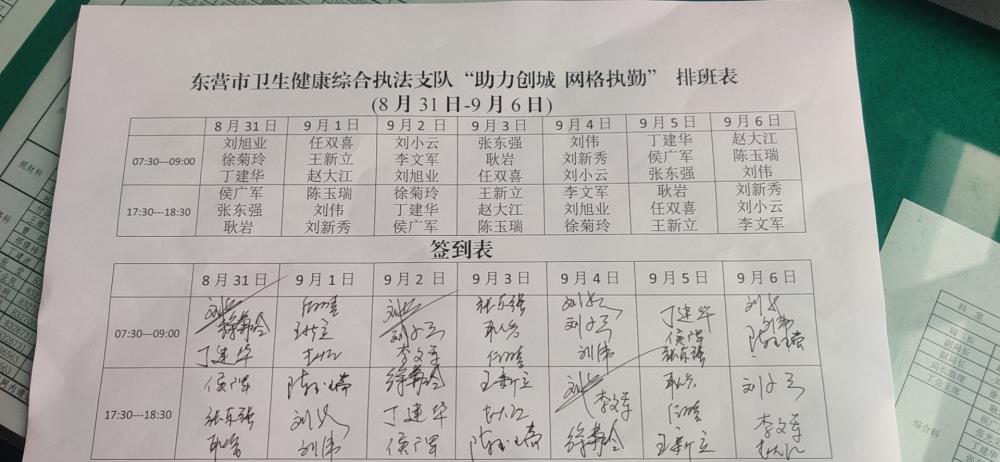 东营市卫生健康综合执法支队“助力创城 网格执勤” 排班表
(8月31日-9月6日)
8月31日 9月1日 9月2日 9月3日 9月4日 9月5日 9月6日
07:30---09:00
刘旭业 任双喜 刘小云 张东强 刘伟 丁建华 赵大江
徐菊玲 王新立 李文军 耿岩 刘新秀 侯广军 陈玉瑞
丁建华 赵大江 刘旭业 任双喜 刘小云 张东强 刘伟
17:30---18:30
侯广军 陈玉瑞 徐菊玲 王新立 李文军 耿岩 刘新秀
张东强 刘伟 丁建华 赵大江 刘旭业 任双喜 刘小云
耿岩 刘新秀 侯广军 陈玉瑞 徐菊玲 王新立 李文军
签到表
8月31日 9月1日 9月2日 9月3日 9月4日 9月5日 9月6日
07:30---09:00
张东强 丁建华
徐菊玲 王新立 刘小云 耿岩 刘小云 侯广军 刘伟
丁建华 李文军 刘伟 张东强 陈玉瑞
17:30---18:30
侯广军 陈玉瑞 徐菊玲 王新立 耿岩 刘小云
张东强 丁建华 李文军 李文军
耿岩 刘伟 侯广军 陈玉瑞 徐菊玲 王新立
规财科
科室
局长
副局长
副局长
局长助理
工会主席
综合科